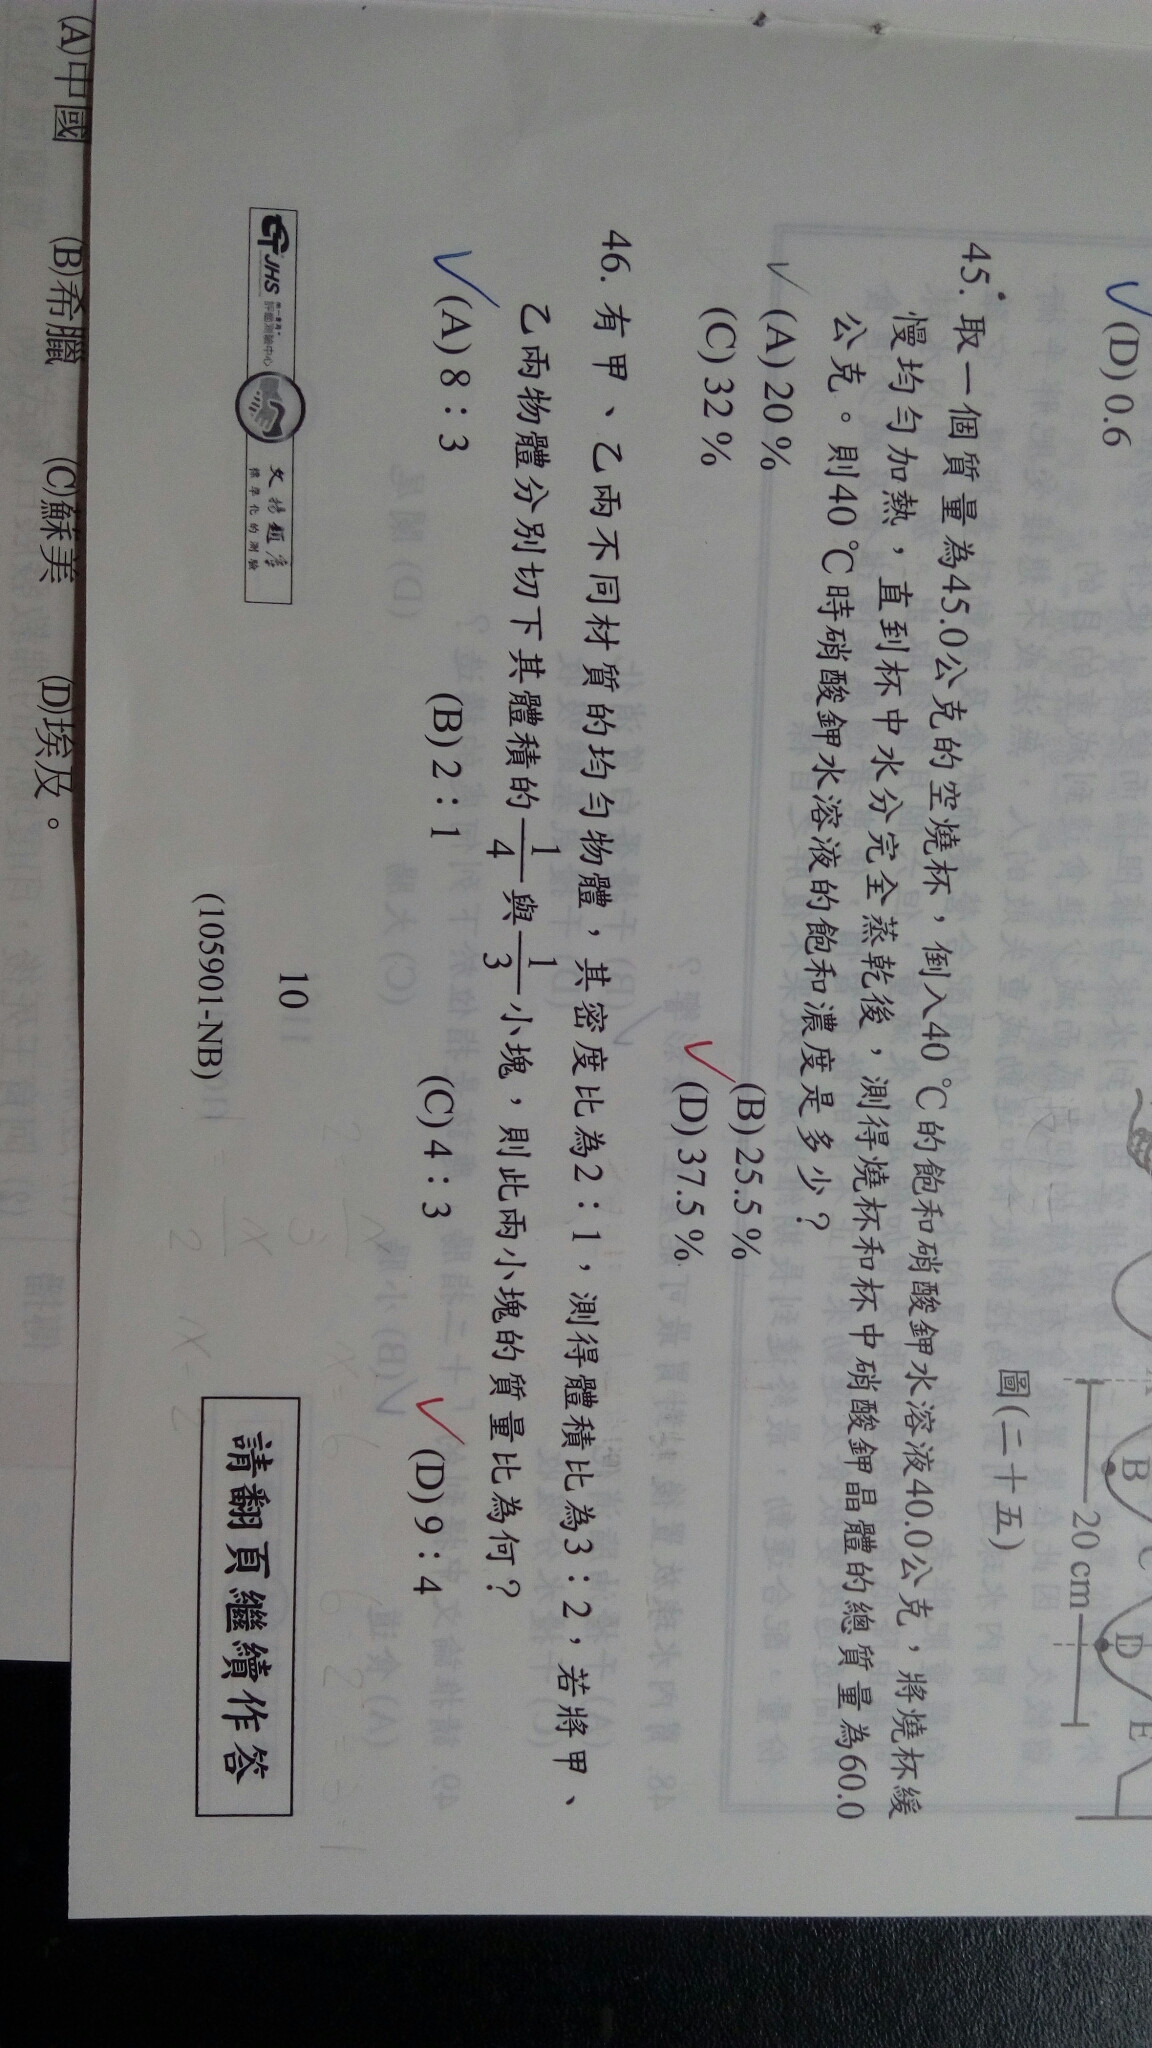 (D) 0.6
B
C
D
E
20 cm
圖(二十五)
45. 取一個質量為45.0公克的空燒杯，倒入40 ℃的飽和硝酸鉀水溶液40.0公克，將燒杯緩
慢均勻加熱，直到杯中水分完全蒸乾後，測得燒杯和杯中硝酸鉀晶體的總質量為60.0
公克。則40 ℃時硝酸鉀水溶液的飽和濃度是多少？
(A) 20 % (B) 25.5 %
(C) 32 % (D) 37.5 %
46. 有甲、乙兩不同材質的均勻物體，其密度比為2：1，測得體積比為3：2，若將甲、
乙兩物體分別切下其體積的1/4與1/3小塊，則此兩小塊的質量比為何？
(A) 8：3 (B) 2：1 (C) 4：3 (D) 9：4
JHS 評能測驗中心 文揚題庫
標準化的測驗
10
(105901-NB)
請翻頁繼續作答
(A)中國 (B)希臘 (C)蘇美 (D)埃及。